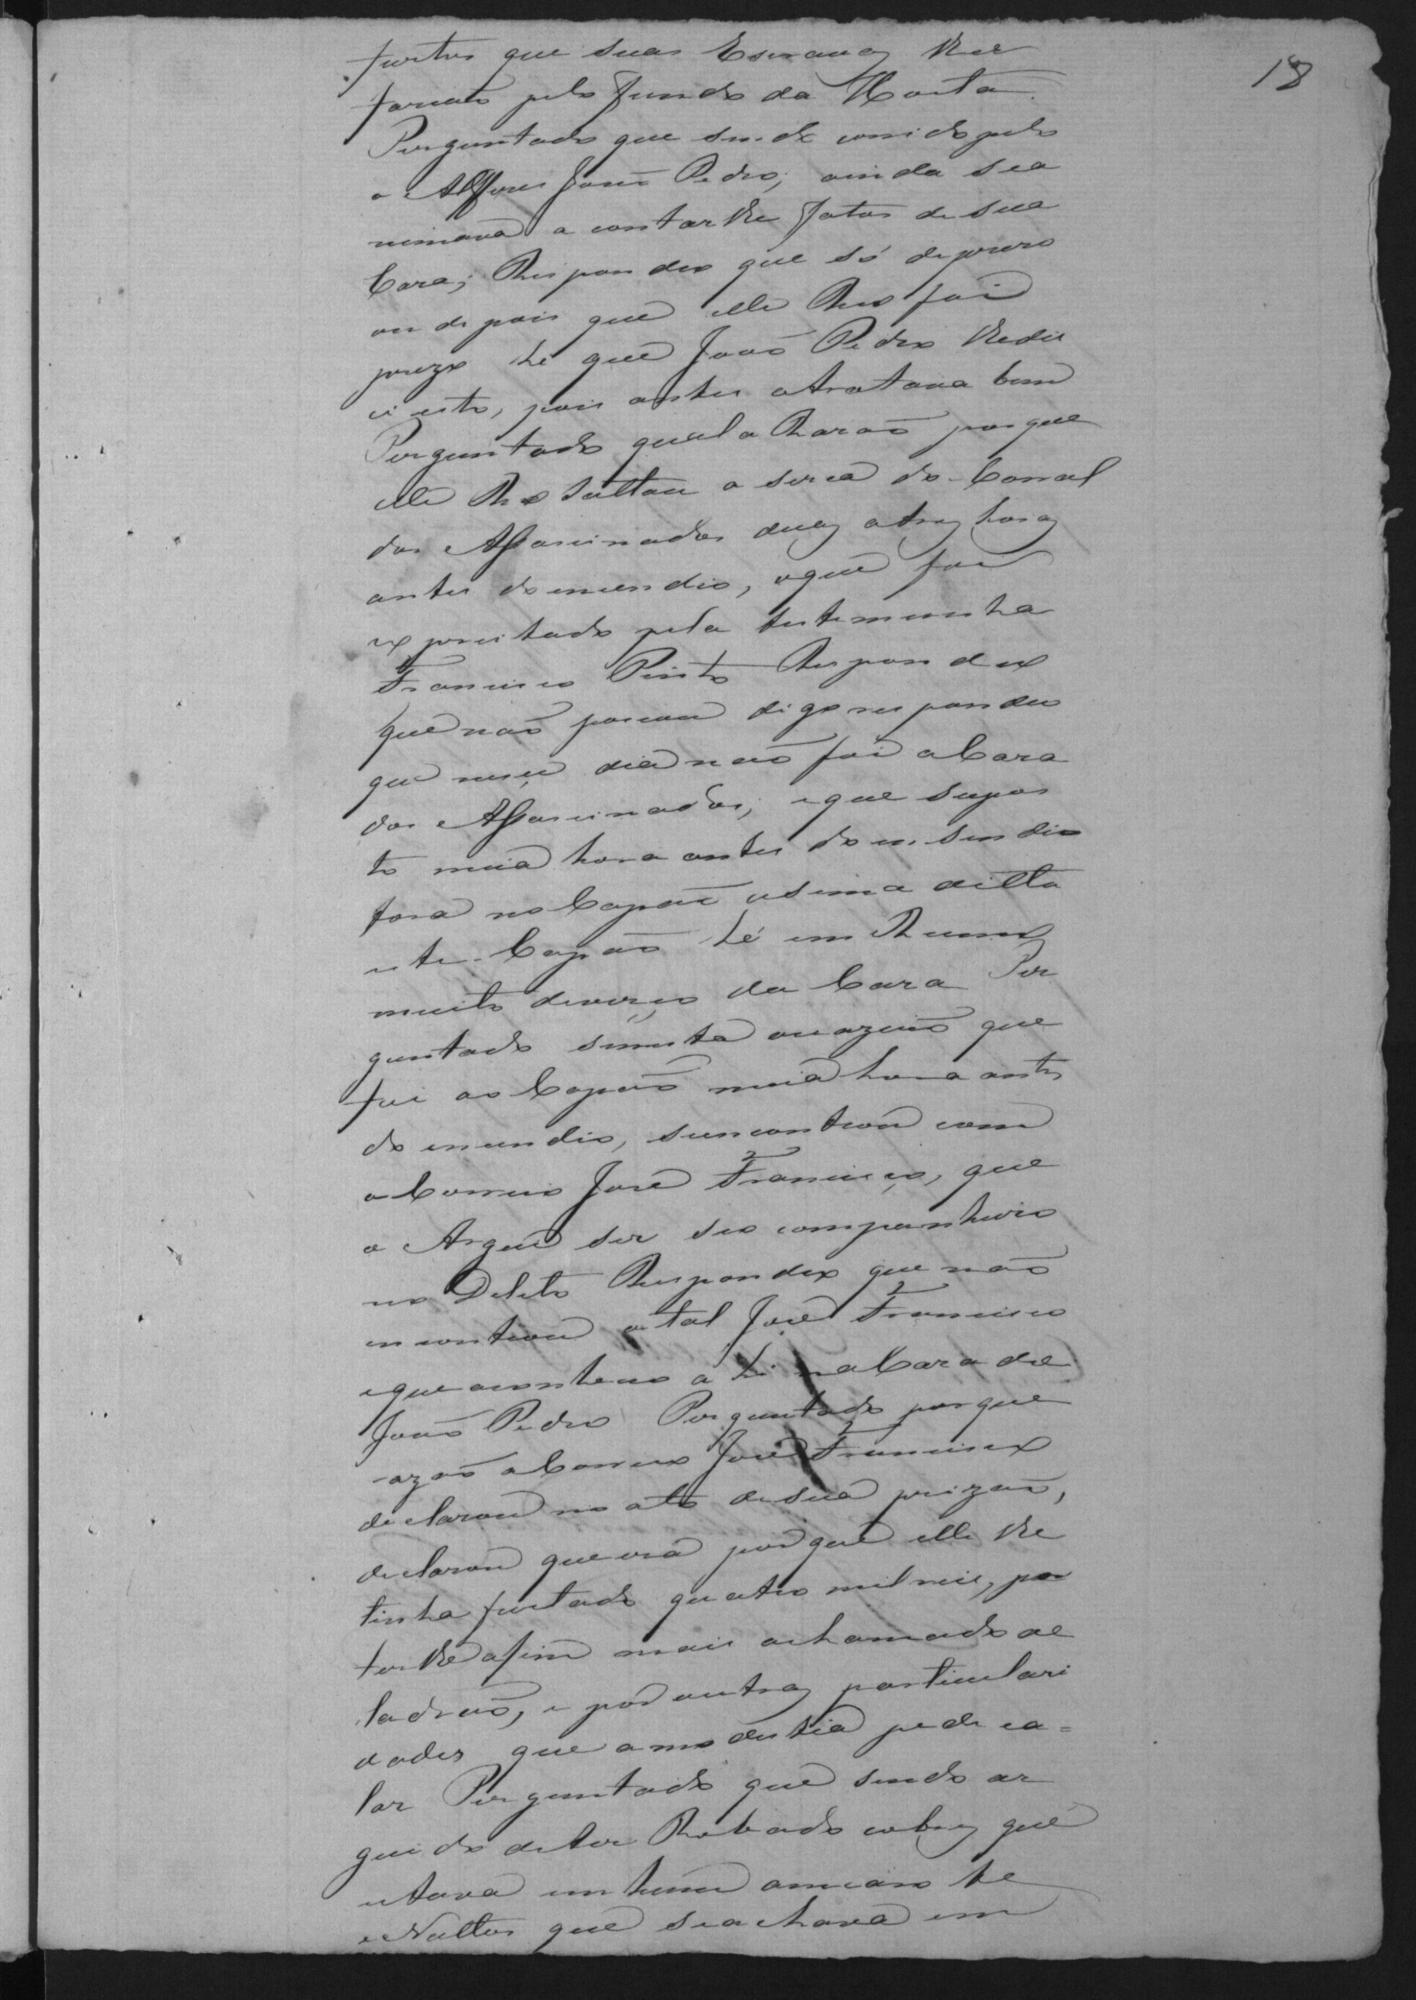 18
furtos que suas Escravas lhe
faziaõ pelo fundo da Horta.
Perguntado que sendo conisido pelo
o Alferes Joaõ Pedro, ainda se a
nimava a contar lhe fatos de sua
Caza; Respondeo que só depois
ou depois que elle Reo foi
prezo hé que Joaõ Pedro lhe diz
isto, pois antes o tratava bem
Perguntado qual a Razaõ porque
elle Reo saltou a serca do Curral
dos Assacinados duas a tres horas
antes do incendio, o que foi
expreitado pela testemunha
Francisco Pinto Respondeo
que naõ passou digo respondeo
que nesse dia naõ foi a Caza
dos Assacinados, e que supos
to meia hora antes do insendio
fora no Capaõ asima ditto
este Capaõ hé em Rumo
muito diverço da Caza Per
guntado se nesta ocaziaõ que
foi ao Capaõ meia hora antes
do incendio, se encontrou com
o Correio José Francisco, que
o Argue ser seo companheiro
no Delito Respondeo que naõ
encontrou o tal José Francisco
e que conheceo a hi na Caza de
Joaõ Pedro Perguntado porque
razaõ o Correio José Francisco
declarou no ato de sua prizaõ,
declarou que era porque elle lhe
tinha furtado quatro mil reis, por
ter lhe asim mais achamado de
ladraõ, e por outras particulari
dades que a modestia pede ca=
lar Perguntado que sendo ar
guido de ter Robado cobres que
estava em huma
e Nattos que se achava em